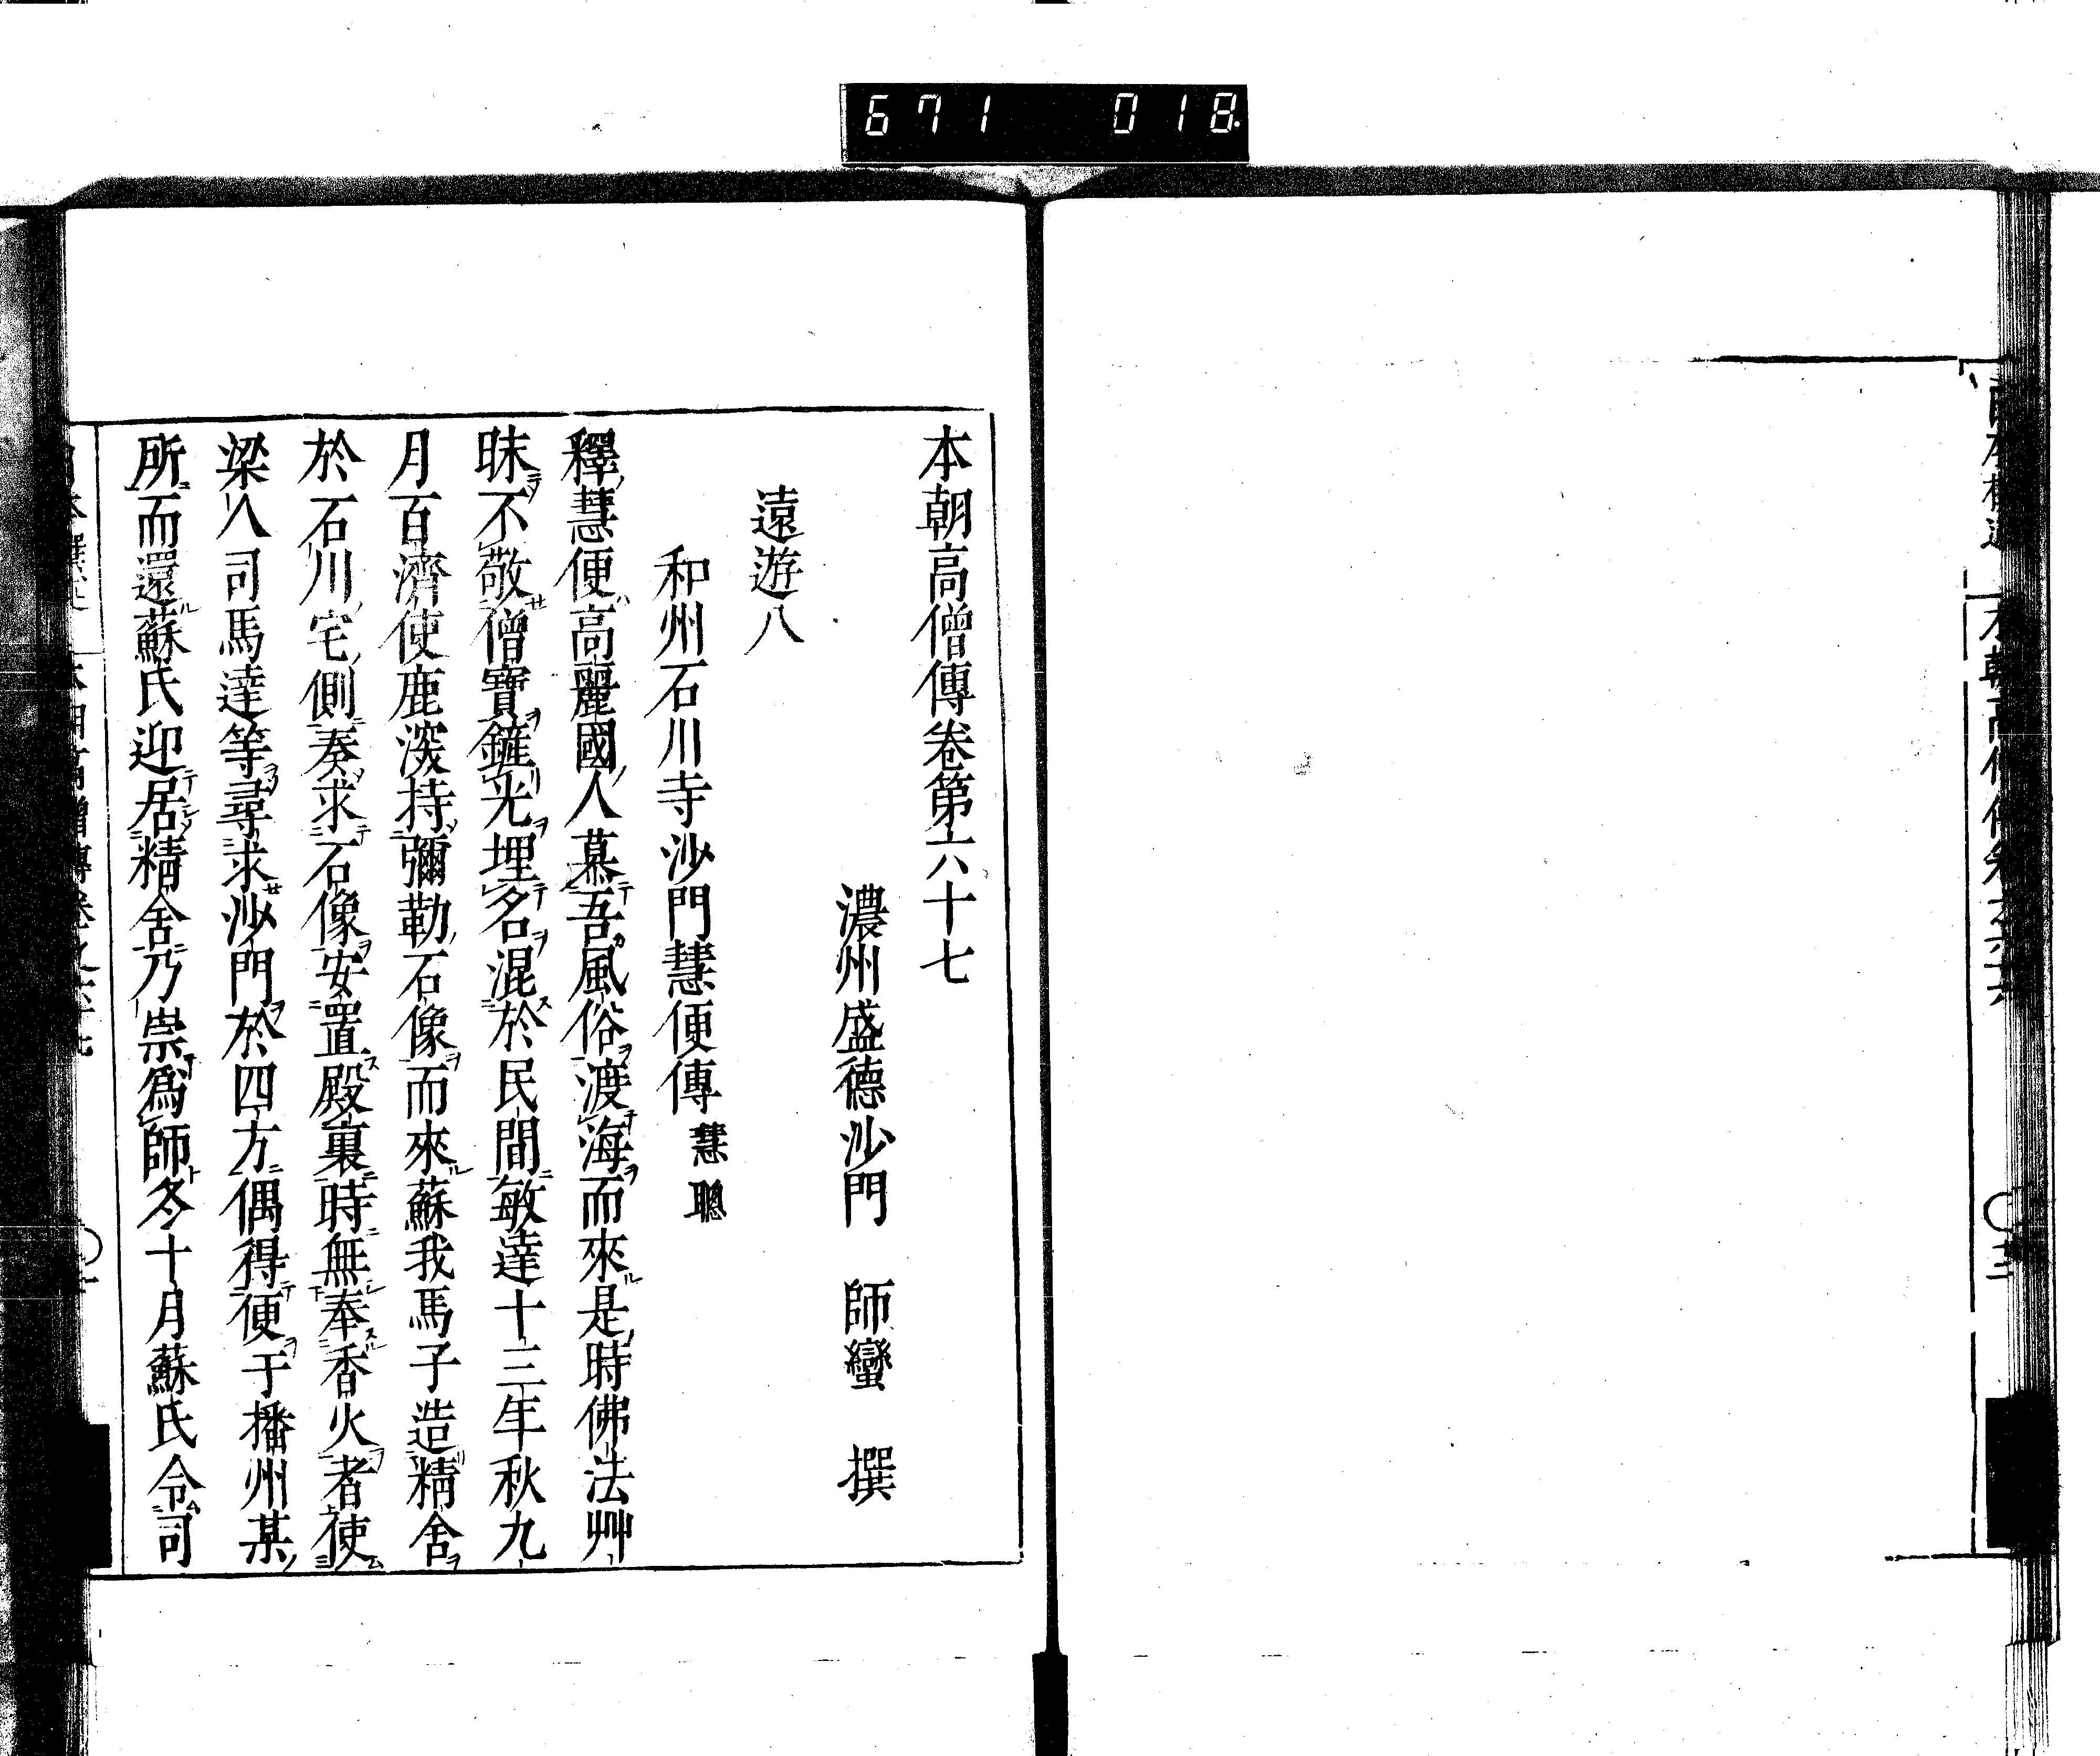 671 018
本朝高僧傳卷第六十七
濃州盛德沙門 師蠻 撰
遠遊八
和州石川寺沙門慧便傳 慧聰
釋慧便高麗國人慕吾風俗渡海而來是時佛法艸
昧不敬僧寶鏟光埋名混於民間敏達十三年秋九
月百濟使鹿深持彌勒石像而來蘇我馬子造精舍
於石川宅側奏求石像安置殿裏時無奉香火者使
梁人司馬達等尋求沙門於四方偶得便于播州某
所而還蘇氏迎居精舍乃崇爲師冬十月蘇氏令司